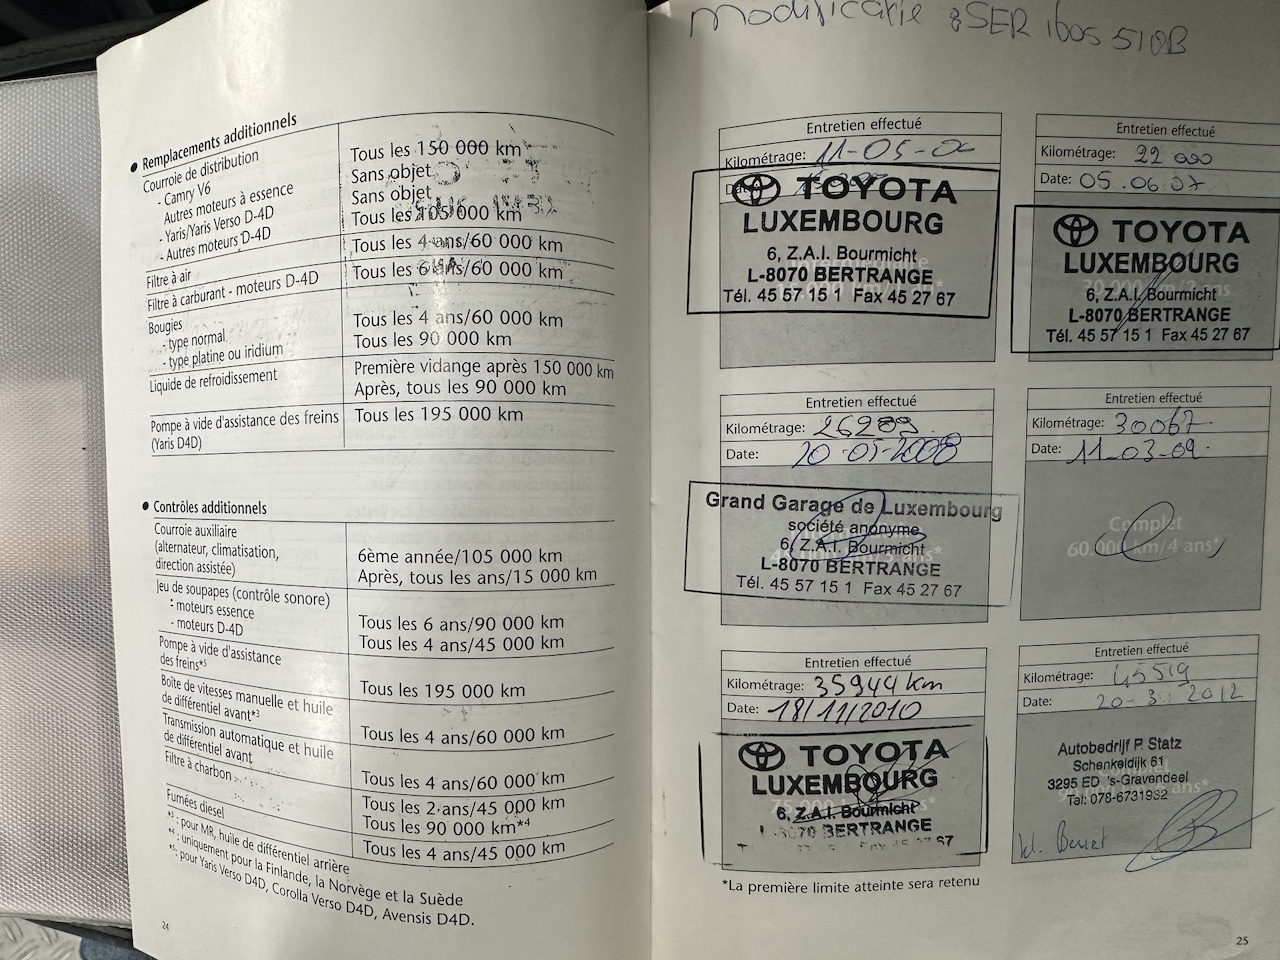 ● Remplacements additionnels
Courroie de distribution
- Camry V6 Tous les 150 000 km
Autres moteurs à essence Sans objet
- Yaris/Yaris Verso D-4D Sans objet
- Autres moteurs D-4D Tous les 105 000 km
Filtre à air Tous les 4 ans/60 000 km
Filtre à carburant - moteurs D-4D Tous les 6 ans/60 000 km
Bougies
- type normal Tous les 4 ans/60 000 km
- type platine ou iridium Tous les 90 000 km
Liquide de refroidissement Première vidange après 150 000 km
Après, tous les 90 000 km
Pompe à vide d'assistance des freins Tous les 195 000 km
(Yaris D4D)
● Contrôles additionnels
Courroie auxiliaire
(alternateur, climatisation, 6ème année/105 000 km
direction assistée) Après, tous les ans/15 000 km
Jeu de soupapes (contrôle sonore)
- moteurs essence Tous les 6 ans/90 000 km
- moteurs D-4D Tous les 4 ans/45 000 km
Pompe à vide d'assistance
des freins*⁵ Tous les 195 000 km
Boîte de vitesses manuelle et huile
de différentiel avant*³ Tous les 4 ans/60 000 km
Transmission automatique et huile
de différentiel avant Tous les 4 ans/60 000 km
Filtre à charbon Tous les 2 ans/45 000 km
Tous les 90 000 km*⁴
Fumées diesel Tous les 4 ans/45 000 km
*³: pour MR, huile de différentiel arrière
*⁴: uniquement pour la Finlande, la Norvège et la Suède
*⁵: pour Yaris Verso D4D, Corolla Verso D4D, Avensis D4D.
24
modificatie
Entretien effectué
Kilométrage:
TOYOTA
LUXEMBOURG
6, Z.A.I. Bourmicht
L-8070 BERTRANGE
Tél. 45 57 15 1 Fax 45 27 67
Entretien effectué
Kilométrage: 22 000
Date: 05.06.07
TOYOTA
LUXEMBOURG
6, Z.A.I. Bourmicht
L-8070 BERTRANGE
Tél. 45 57 15 1 Fax 45 27 67
Entretien effectué
Kilométrage: 26289
Date: 20-05-2008
Grand Garage de Luxembourg
société anonyme
6, Z.A.I. Bourmicht
L-8070 BERTRANGE
Tél. 45 57 15 1 Fax 45 27 67
Entretien effectué
Kilométrage: 30067
Date: 11-03-09
Complet
60.000 km/4 ans*
Entretien effectué
Kilométrage: 35944 km
Date: 18/11/2010
TOYOTA
LUXEMBOURG
6, Z.A.I. Bourmicht
L-8070 BERTRANGE
Entretien effectué
Kilométrage: 45519
Date: 20-3-2012
Autobedrijf P. Statz
Schenkeldijk 61
3295 ED 's-Gravendeel
Tel: 078-6731932
*La première limite atteinte sera retenu
25